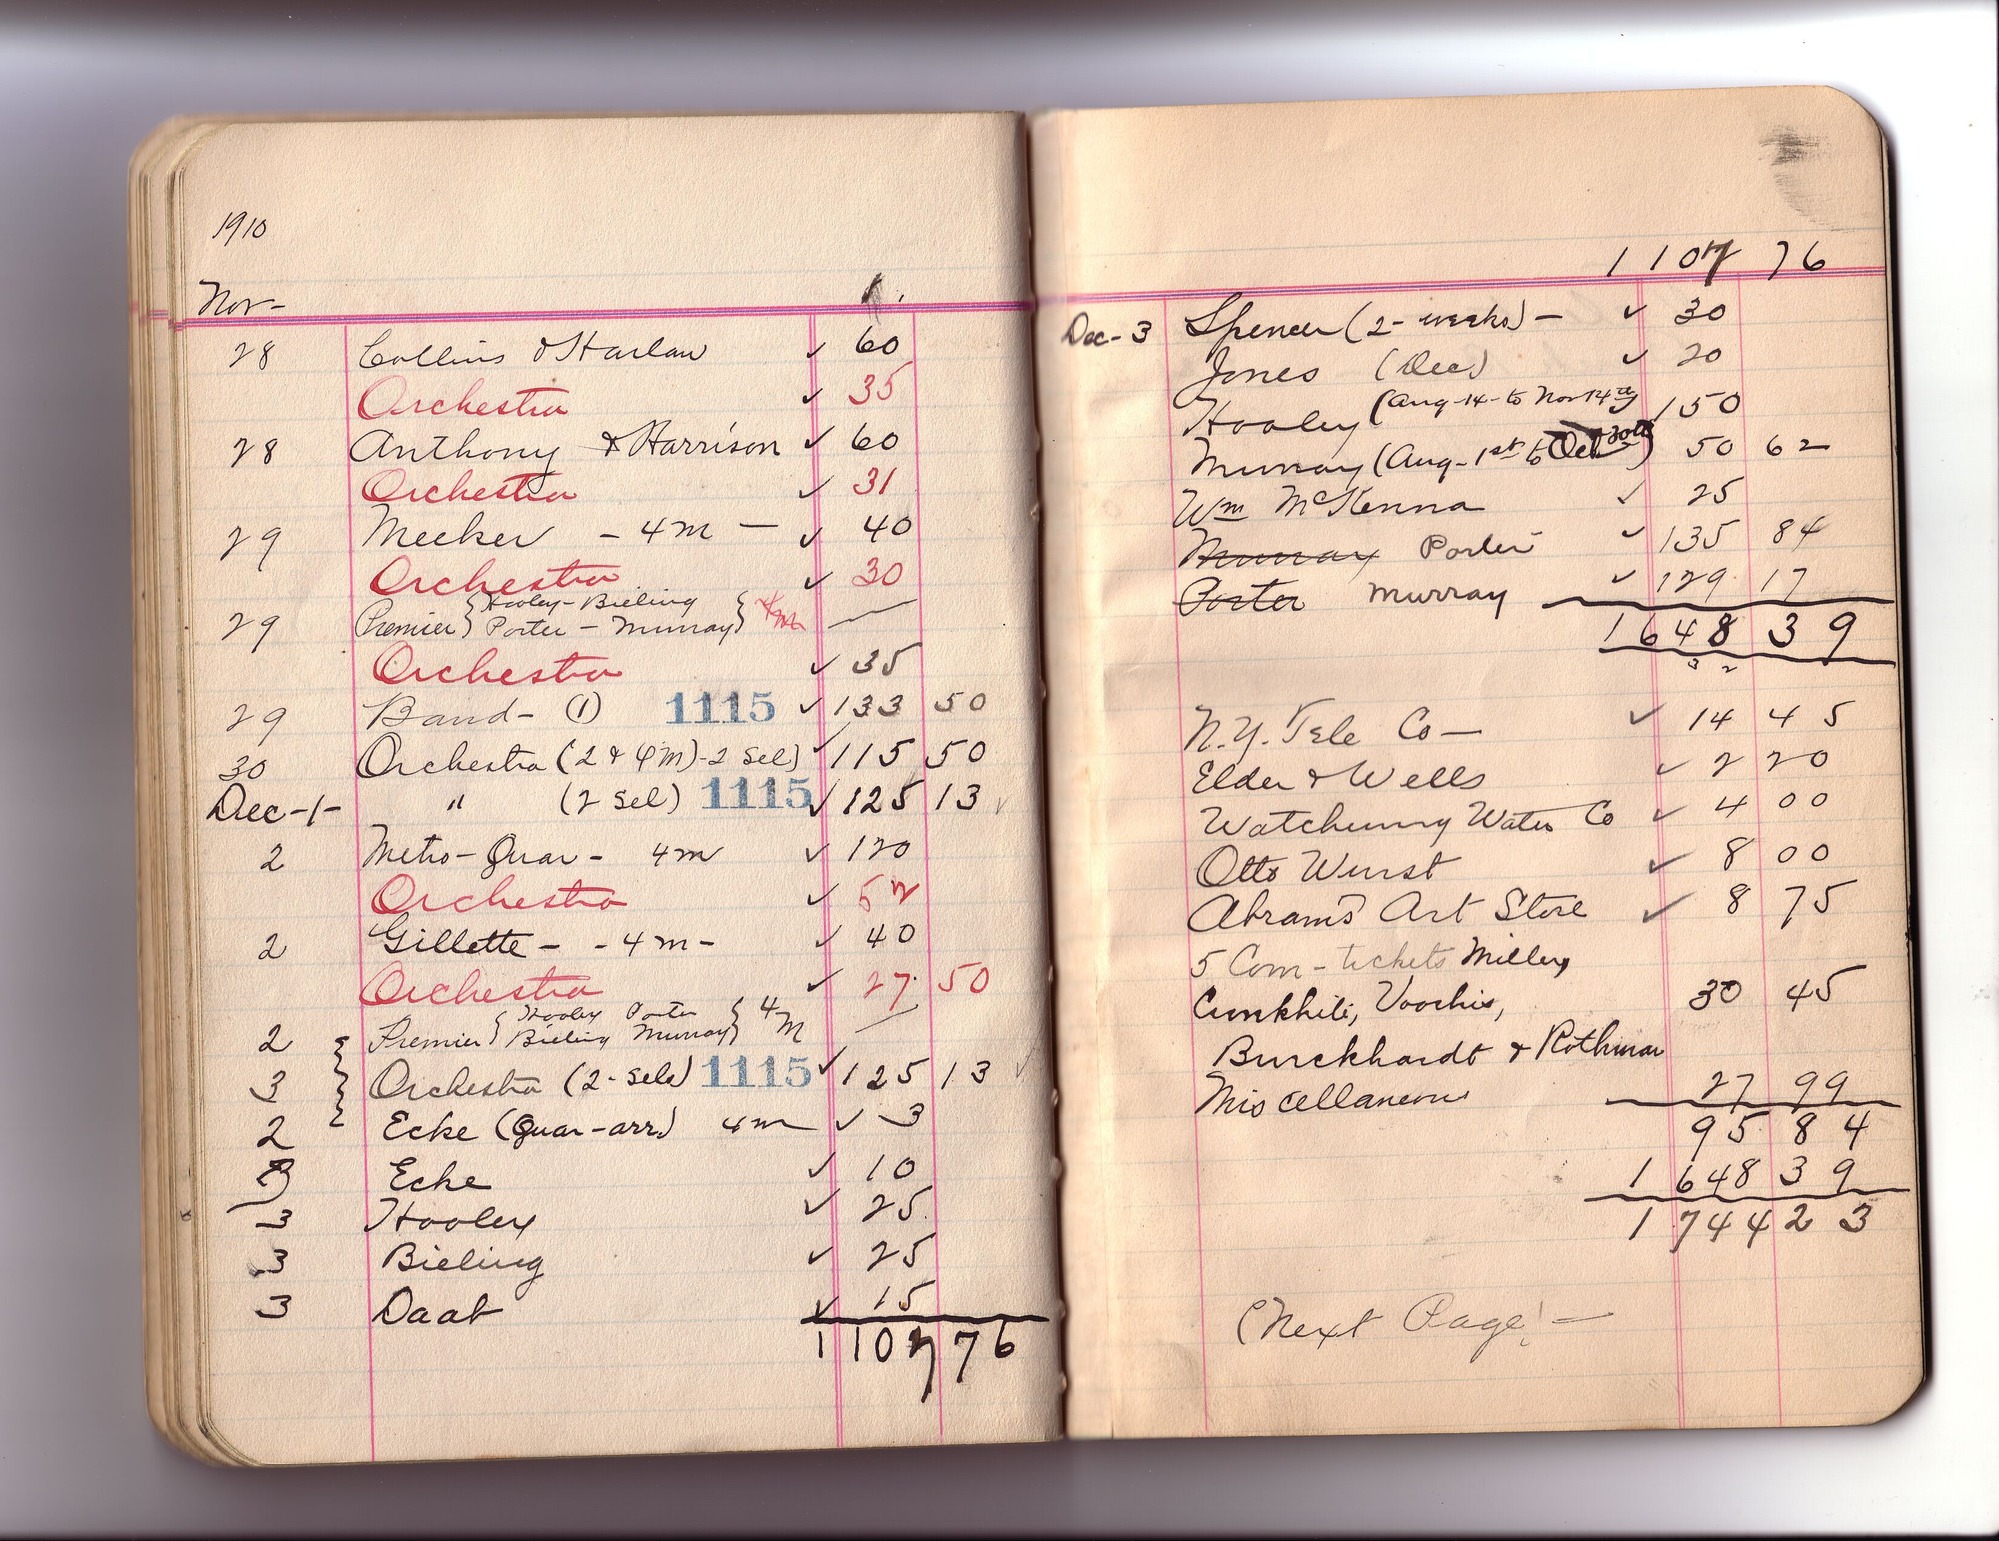 1910
Nov-
28 Collins & Harlan ✓ 60
Orchestra ✓ 35
28 Anthony & Harrison ✓ 60
Orchestra ✓ 31
29 Meeker - 4m - ✓ 40
Orchestra ✓ 30
29 Premier { Hooley - Bieling
Porter - Murray } 4m —
Orchestra ✓ 35
29 Band - (1) 1115 ✓ 133 50
30 Orchestra (2 & 4m)-2 sel) ✓ 115 50
Dec-1- " (2 sel) 1115 ✓ 125 13
2 Metro-Quar - 4m ✓ 120
Orchestra ✓ 52
2 Gillette - - 4m - ✓ 40
Orchestra ✓ 27 50
2 Premier { Hooley Porter
Bieling Murray } 4M —
3 Orchestra (2-sels) 1115 ✓ 125 13
2 Ecke (Quar-arr) 4m ✓ 3
3 Ecke ✓ 10
3 Hooley ✓ 25
3 Bieling ✓ 25
3 Daab ✓ 15
1107 76
1107 76
Dec-3 Spencer (2-weeks) - ✓ 30
Jones (Dec) ✓ 20
Hooley (Aug-14-to Nov 14th) 150
Murray (Aug-1st to Oct 30th) 50 62
Wm McKenna ✓ 25
Murray Porter ✓ 135 84
Porter Murray ✓ 129 17
1648 39
3 2
N.Y. Tele Co - ✓ 14 45
Elder & Wells ✓ 2 20
Watchung Water Co ✓ 4 00
Otto Wurst ✓ 8 00
Abrams Art Store ✓ 8 75
5 Com-tickets Miller,
Cronkhite, Voorhis, 30 45
Burckhardt & Rothman
Miscellaneous 27 99
95 84
1 648 39
1 744 23
(Next Page) -